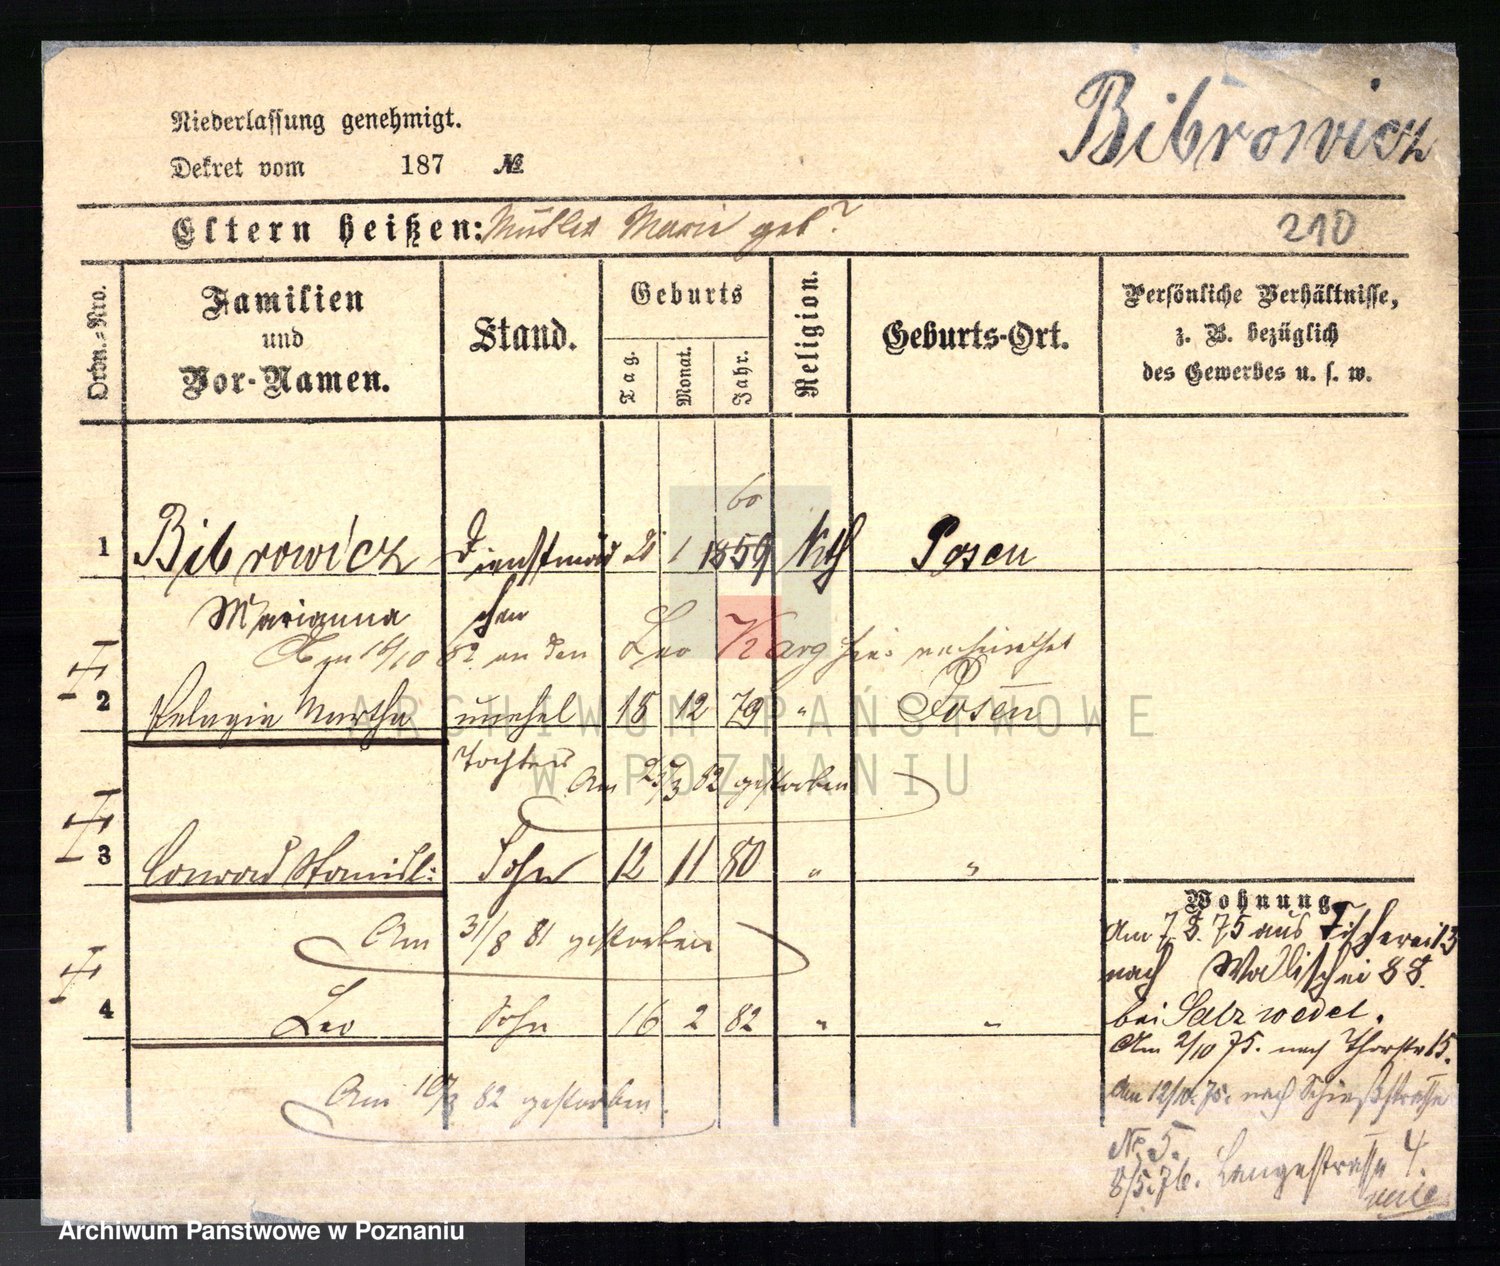 Niederlassung genehmigt.
Dekret vom 187 №
Bibrowicz
Eltern heißen: Mutter Marie geb?
210
Ordn.-Nro.
Familien
und
Vor-Namen.
Stand.
Geburts
Tag.
Monat.
Jahr.
Religion.
Geburts-Ort.
Persönliche Verhältnisse,
z. B. bezüglich
des Gewerbes u. s. w.
60
1 Bibrowicz Dienstmäd 1 1859 Kth Posen
Marianna chen
Am 16/10 82 an den Leo Karg hier verheirathet
2 Pelagia Martha unehel 15 12 79 " Posen
Tochter
Am 25/3 82 gestorben
3 Conrad Stanisl: Sohn 12 11 80 " "
Am 31/8 81 gestorben
4 Leo Sohn 16 2 82 " "
Am 10/3 82 gestorben.
Wohnung
Am 7. 5. 75 aus Fischerei 13
nach Wallischei 88.
bei Salzwedel.
Am 2/10 75. nach Thorstr 15.
Am 12/10. 75. nach Schießstrasse
No. 5.
8/5. 76. Langestrasse 4.
ARCHIWUM PAŃSTWOWE
W POZNANIU
Archiwum Państwowe w Poznaniu